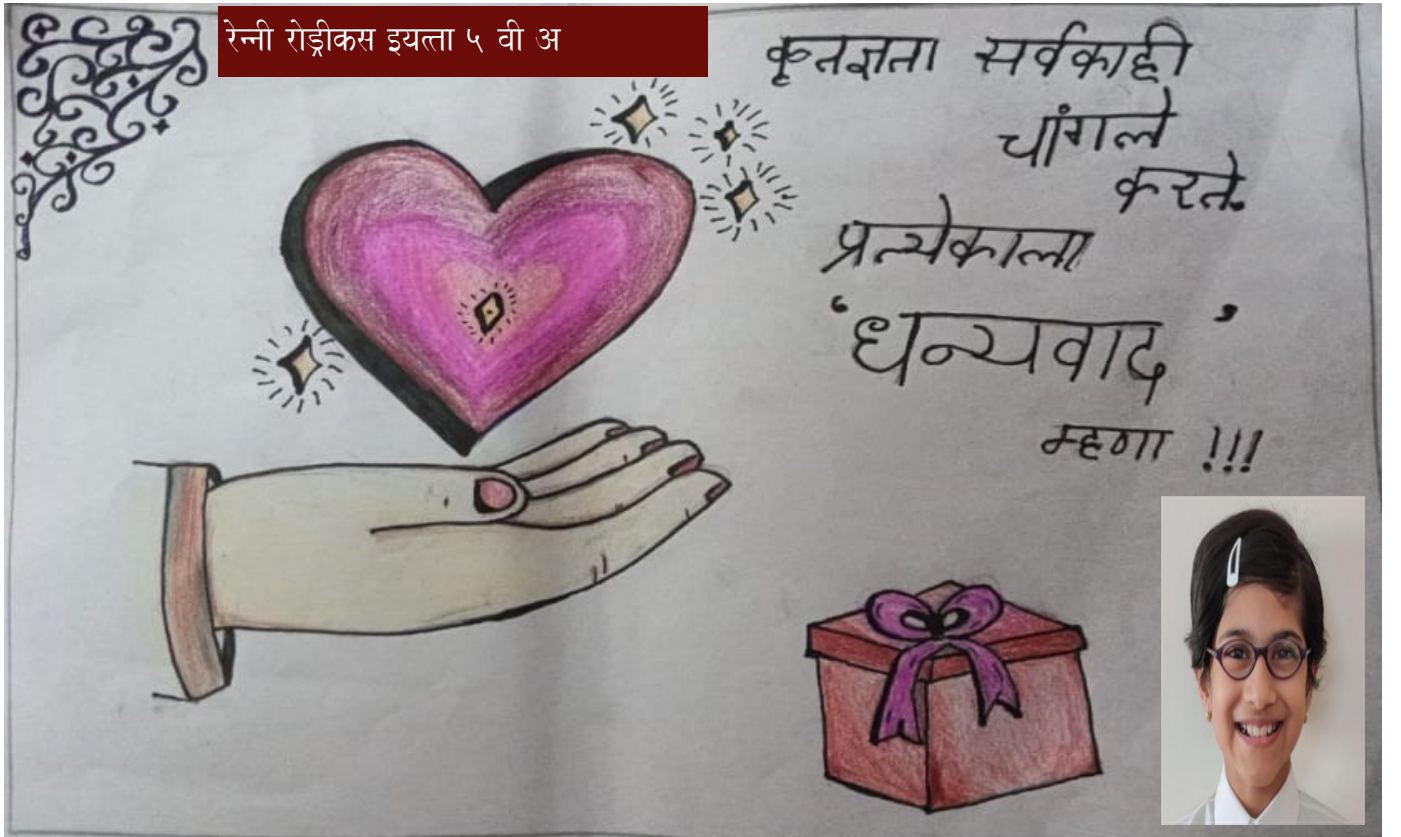 रेन्नी रोड्रीकस इयत्ता ५ वी अ
कृतज्ञता सर्वकाही
चांगले
करते.
प्रत्येकाला
'धन्यवाद'
म्हणा !!!